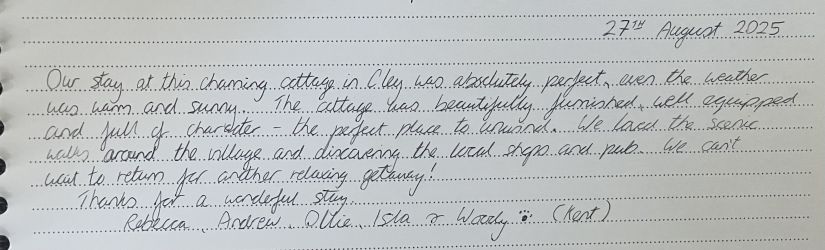 27TH August 2025
Our stay at this charming cottage in Cley was absolutely perfect, even the weather
was warm and sunny. The cottage was beautifully furnished, well equipped
and full of character - the perfect place to unwind. We loved the scenic
walks around the village and discovering the local shops and pub. We can't
wait to return for another relaxing getaway!
Thanks for a wonderful stay.
Rebecca, Andrew, Ollie, Isla & Woody 🐾 (Kent)